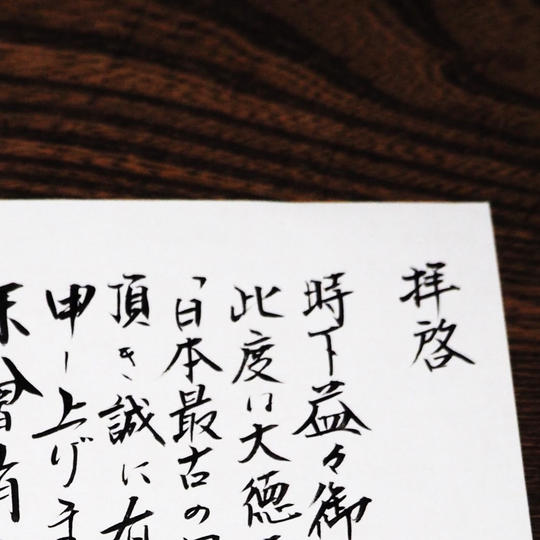 拝啓
時下益々御
此度は大徳
「日本最古の
頂き誠に有
申し上げま
末曽有